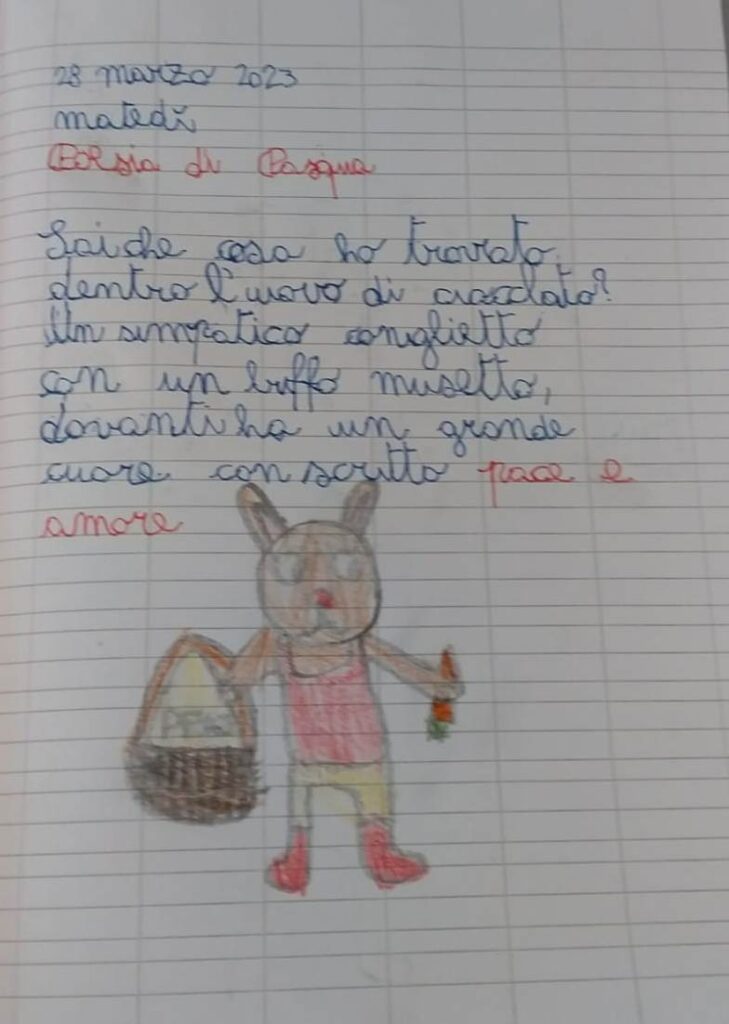 28 marzo 2023
matedì
Poesia di Pasqua
Sai che cosa ho trovato
dentro l'uovo di cioccolato?
Un simpatico coniglietto
con un buffo musetto,
davanti ha un grande
cuore con scritto pace e
amore